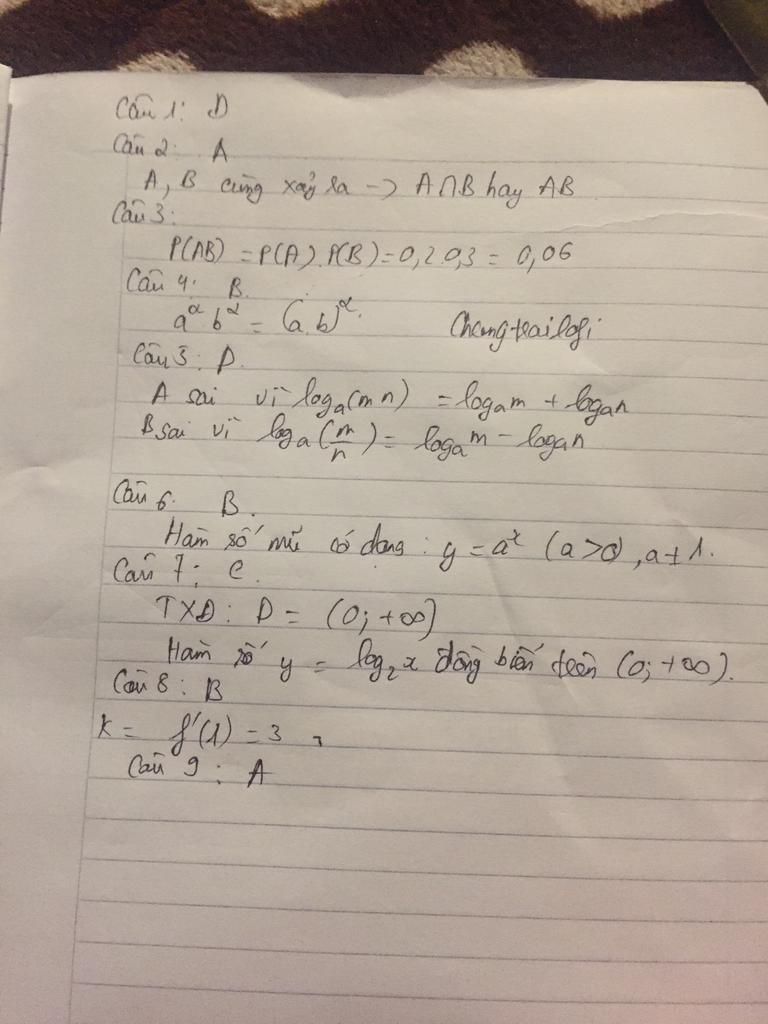 Câu 1: D
Câu 2: A
A, B cùng xảy ra -> A∩B hay AB
Câu 3:
P(AB) = P(A).P(B) = 0,2.0,3 = 0,06
Câu 4: B.
a^α b^α = (a.b)^α. Changtrailofi
Câu 5: D.
A sai vì logₐ(mn) = logₐm + logₐn
B sai vì logₐ(m/n) = logₐm - logₐn
Câu 6. B.
Hàm số mũ có dạng: y = a^x (a>0), a≠1.
Câu 7: C.
TXD: D = (0; +∞)
Hàm số y = log₂x đồng biến trên (0; +∞).
Câu 8: B
K = f'(1) = 3
Câu 9: A